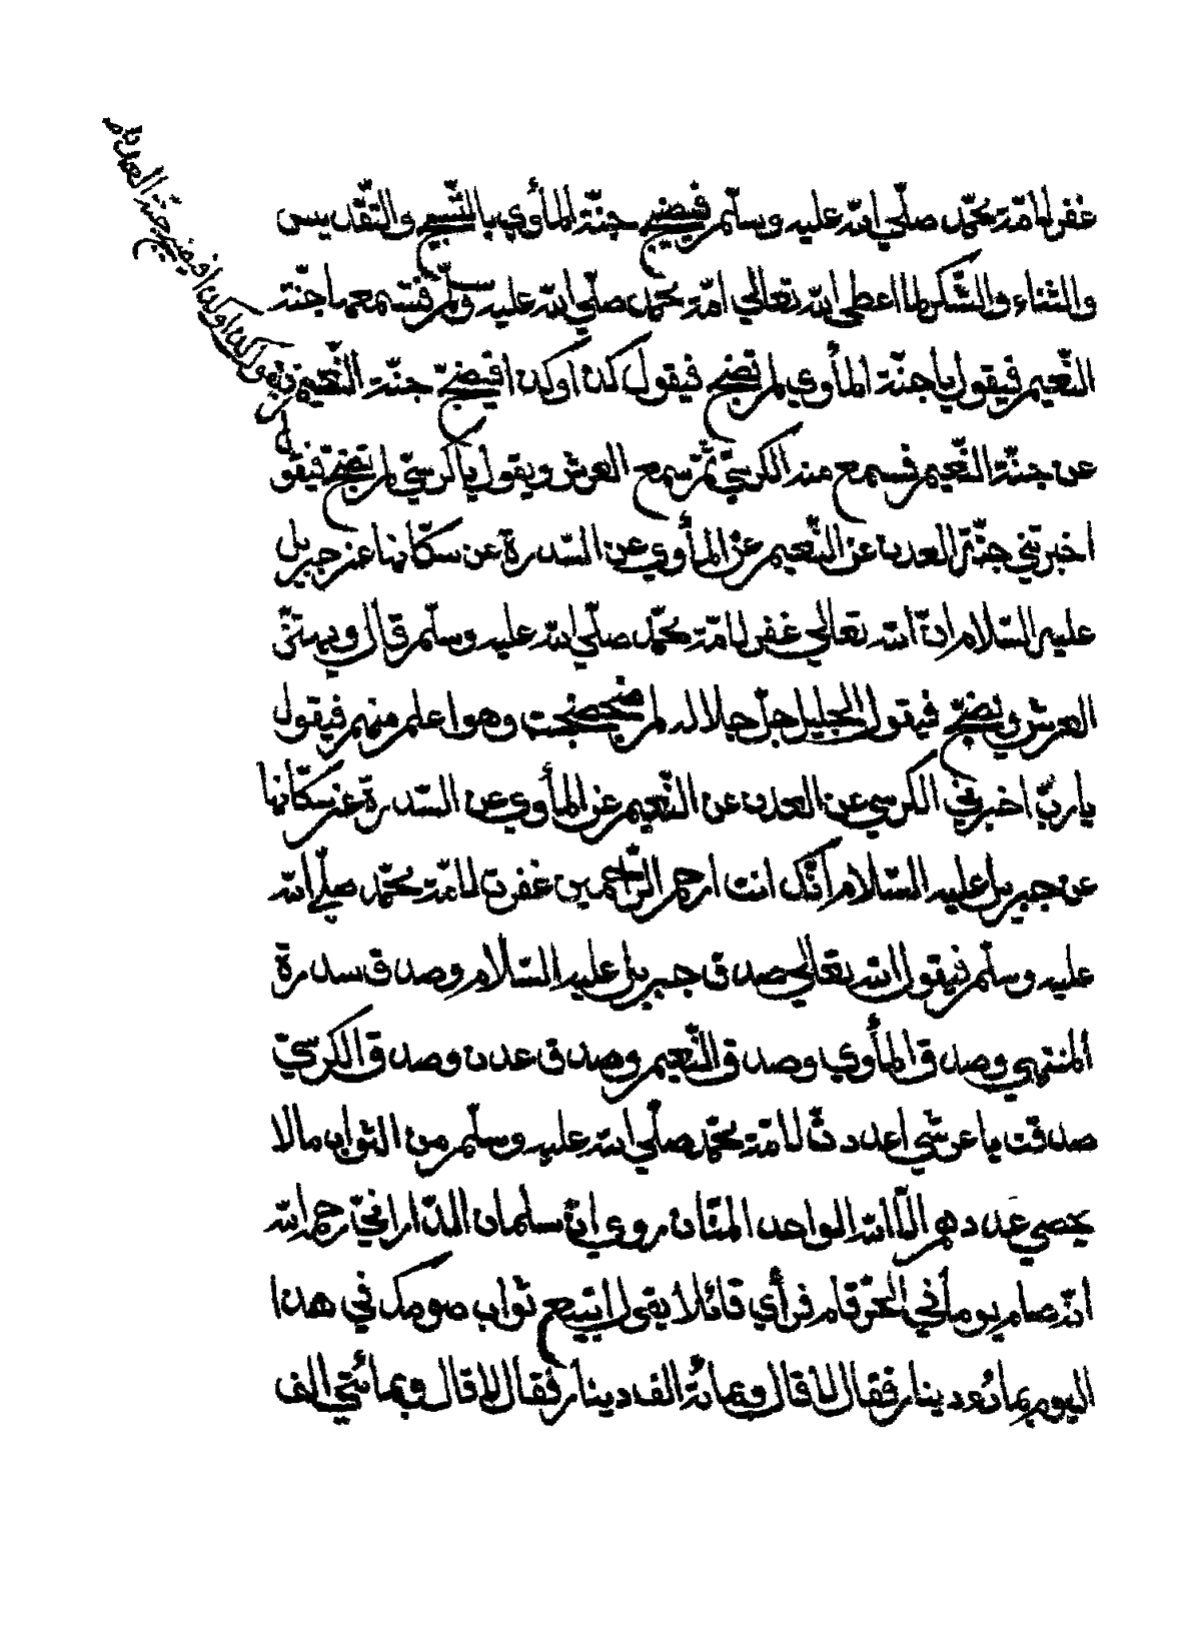 غفر لامّة محمّد صلّي الله عليه وسلّم فيضجّ جنّة المأوي بالتّسبيح والتّقديس
والثناء والشّكر لما اعطي الله تعالي امّة محمّد صلّي الله عليه وسلّم فتسمعها جنّة
النّعيم فيقول يا جنّة المأوي لم تضجّ فيقول كذا وكذا فيضجّ جنّة النّعيم ثم
يقول كذا وكذا فيضجّ جنّة العدن ثم
عن جنّة النّعيم فسمع منه الكرسيّ ثمّ سمع العرش ويقول يا كرسيّ لم تضجّ فيقول
اخبرتني جنّة العدن عن النّعيم عن المأوي عن السّدرة عن سكّانها عن جبريل
عليه السّلام انّ الله تعالي غفر لامّة محمّد صلّي الله عليه وسلّم قال ويهتزّ
العرش ويضجّ فيقول الجليل جلّ جلاله لم ضججت وهو اعلم منهم فيقول
يا ربّ اخبرني الكرسي عن العدن عن النّعيم عن المأوي عن السّدرة عن سكّانها
عن جبريل عليه السّلام انّك انت ارحم الرّاحمين غفرت لامّة محمّد صلّي الله
عليه وسلّم فيقول الله تعالي صدق جبريل عليه السّلام وصدق سدرة
المنتهي وصدق المأوي وصدق النّعيم وصدق عدن وصدق الكرسيّ
صدقت يا عرشي اعددتّ لامّة محمّد صلّي الله عليه وسلّم من الثواب مالا
يحصي عددهم الّا الله الواحد المنّان روي انّ سليمان الدّارانيّ رحمه الله
انّه صام يوماً في الحرّ قام فرأي قائلا يقول اتبيع ثواب صومك في هذا
اليوم بمائة دينار فقال لا قال وبمائة الف دينار فقال لا قال وبمائتي الف